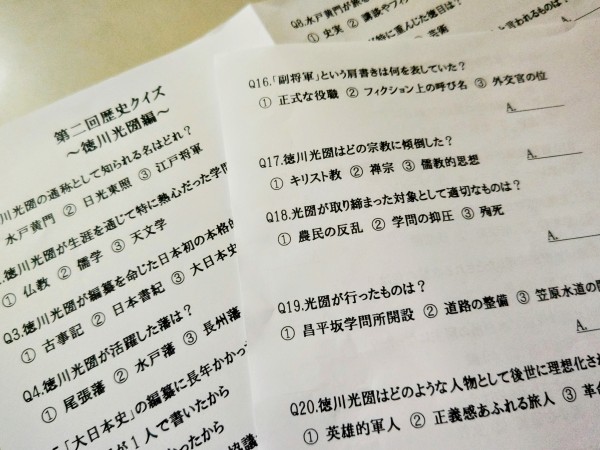 第二回歴史クイズ
～徳川光圀編～
川光圀の通称として知られる名はどれ？
水戸黄門 ② 日光東照 ③ 江戸将軍
徳川光圀が生涯を通じて特に熱心だった学問
① 仏教 ② 儒学 ③ 天文学
Q3.徳川光圀が編纂を命じた日本初の本格的
① 古事記 ② 日本書紀 ③ 大日本史
Q4.徳川光圀が活躍した藩は？
① 尾張藩 ② 水戸藩 ③ 長州藩
「大日本史」の編纂に長年かかっ
が1人で書いたから
かったから
協議
Q8.水戸黄門が
① 史実 ② 講談や
特に重んじた徳目は？
③ 芸術
と言われるものは？
Q16.「副将軍」という肩書きは何を表していた？
① 正式な役職 ② フィクション上の呼び名 ③ 外交官の位
A.
Q17.徳川光圀はどの宗教に傾倒した？
① キリスト教 ② 禅宗 ③ 儒教的思想
A.
Q18.光圀が取り締まった対象として適切なものは？
① 農民の反乱 ② 学問の抑圧 ③ 殉死
A.
Q19.光圀が行ったものは？
① 昌平坂学問所開設 ② 道路の整備 ③ 笠原水道の
A.
Q20.徳川光圀はどのような人物として後世に理想化さ
① 英雄的軍人 ② 正義感あふれる旅人 ③ 革命